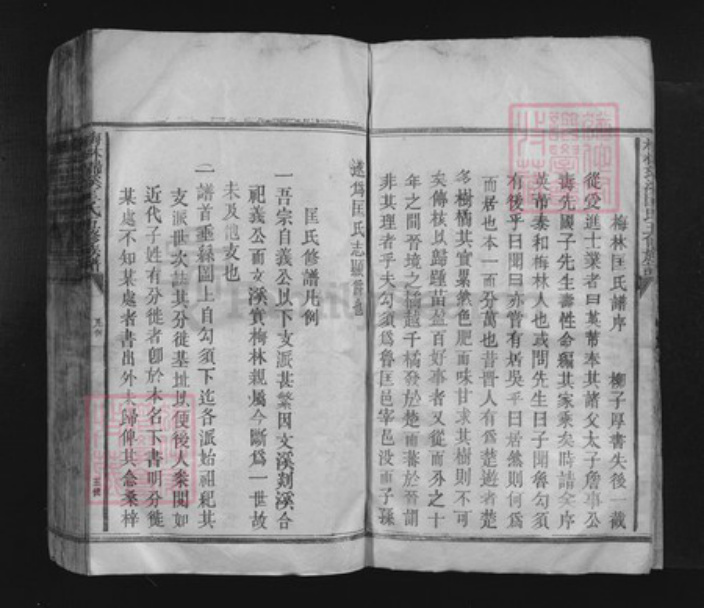 梅林匡氏譜序 柳子厚書失後一截
從受進士業者曰英芾奉其諸父太子詹事公
壽先國子先生壽性命編其家乘矣時請余序
英芾泰和梅林人也或問先生曰子聞魯勾須
有後乎曰聞曰亦嘗有居吳乎曰居然則何為
而居也本一而分萬也昔晉人有為楚遊者楚
多樹橘其實纍然色肥而味甘求其樹則不可
矣傳核以歸種苗盈百好事者又從而外之十
年之間晉境之橘越千橘發於楚而蕃於晉謂
非其理者乎夫勾須為魯匡邑宰邑没而子孫
遂為匡氏志顯
匡氏修譜凡例
一吾宗自義公以下支派甚繁因文溪剡溪合
祀義公而文溪實梅林親屬今斷為一世故
未及他支也
一譜首垂絲圖上自勾須下迄各派始祖紀其
支派世次詰其分徙基址以便後人案閱如
近代子姓有分徙者卽於本名下書明分徙
某處不知某處者書出外未歸俾其念桑梓